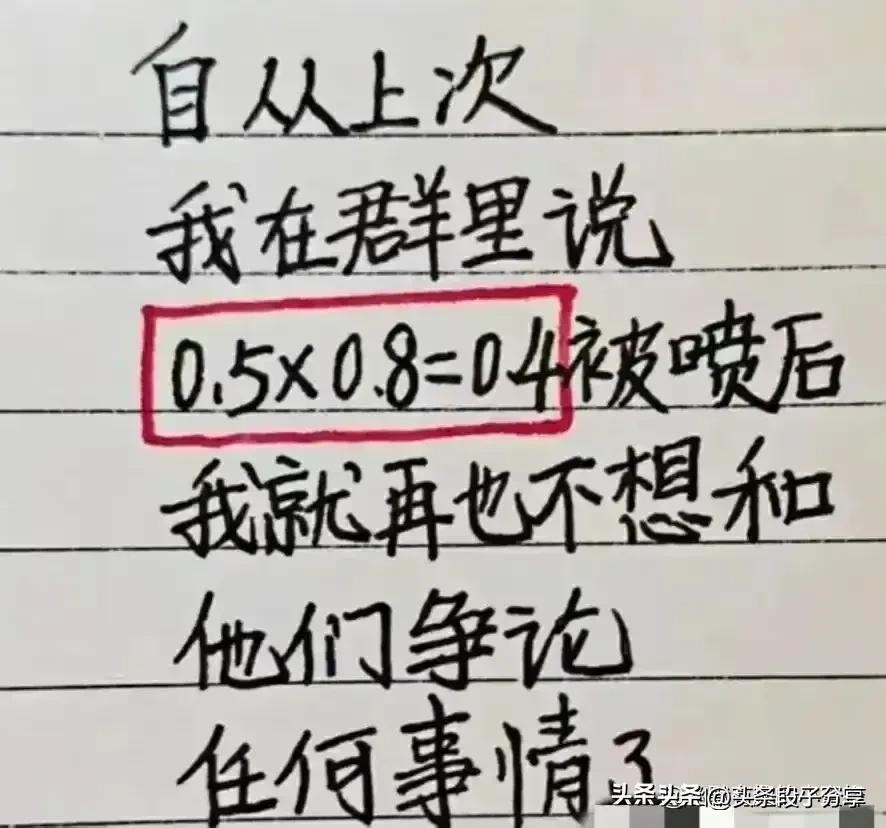 自从上次
我在群里说
0.5×0.8=0.4被喷后
我就再也不想和
他们争论
任何事情了
头条 @头条段子分享